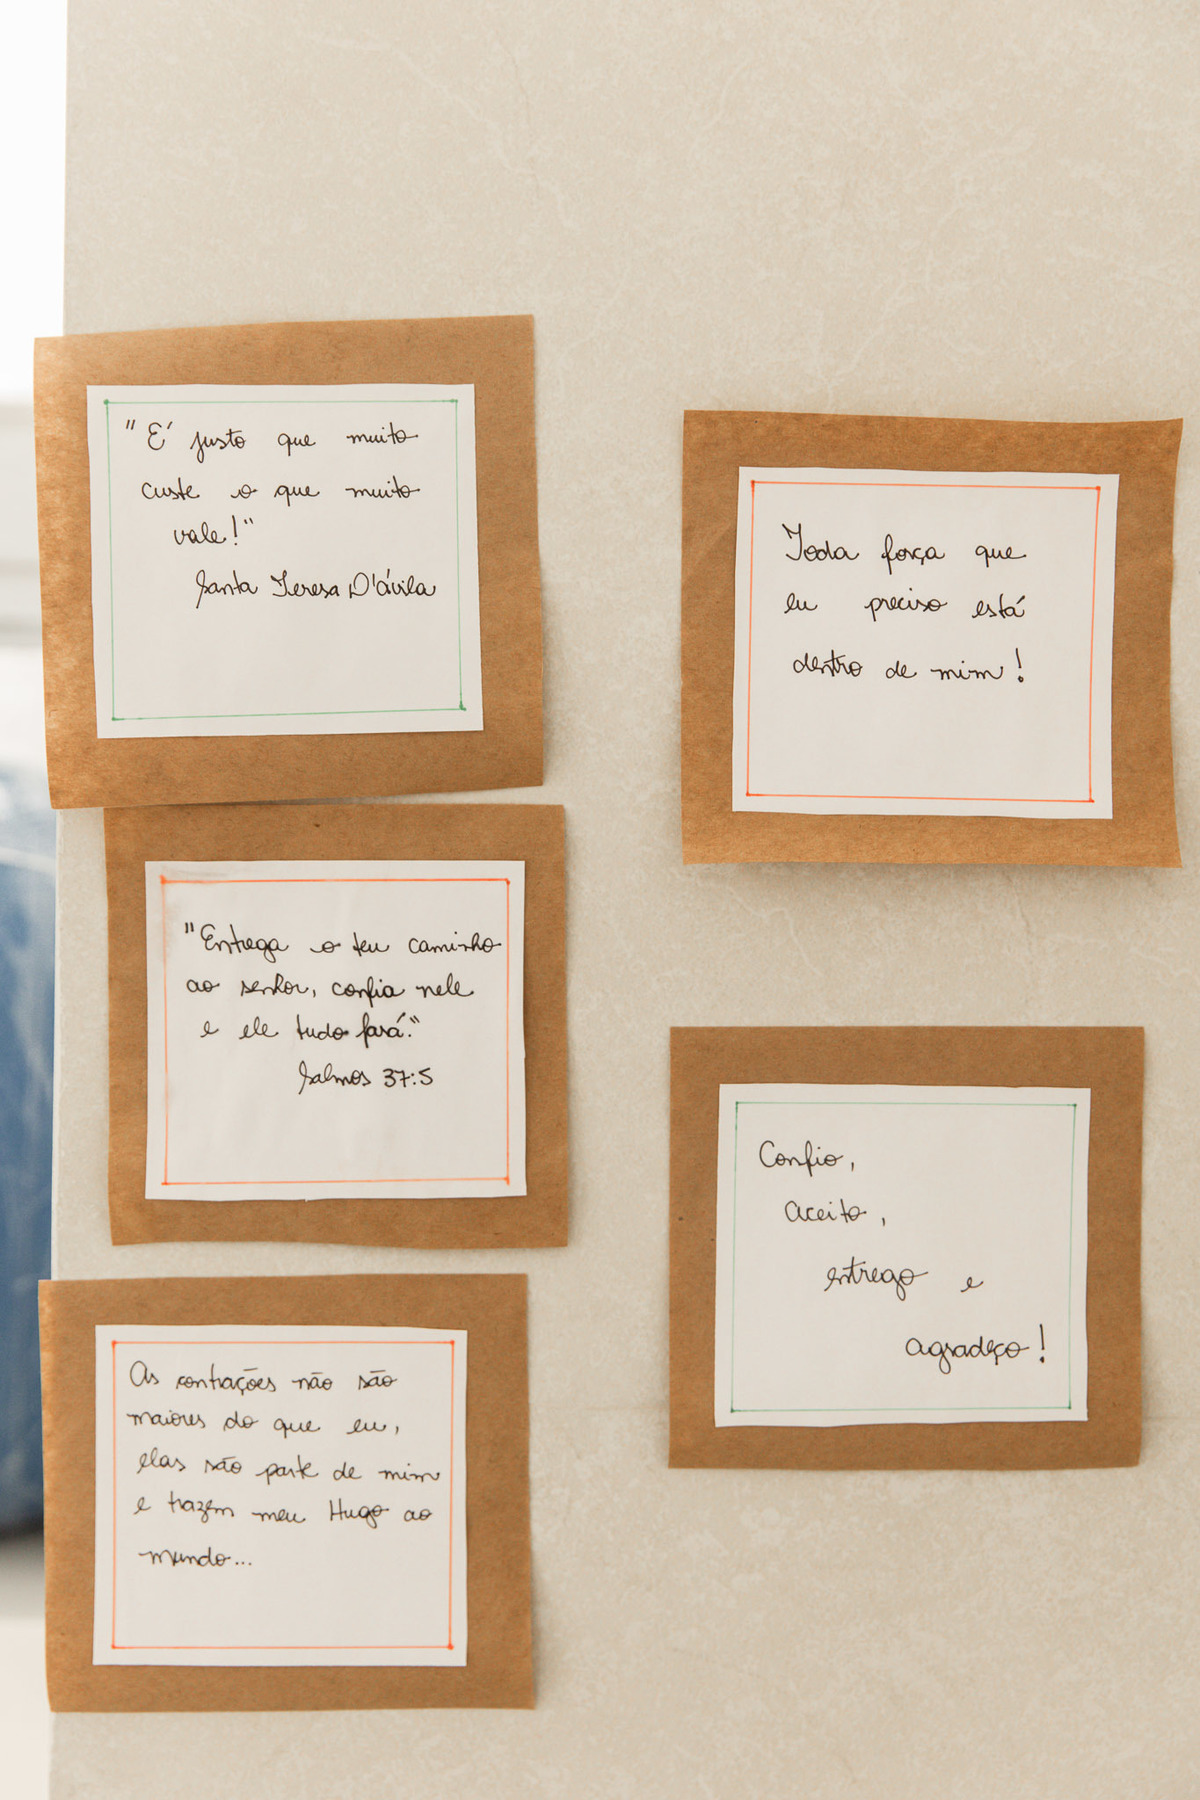 "É justo que muito
custe o que muito
vale!"
Santa Teresa D'ávila
Toda força que
eu preciso está
dentro de mim!
"Entrega o teu caminho
ao senhor, confia nele
e ele tudo fará."
Salmos 37:5
Confio,
aceito,
entrego e
agradeço!
As contrações não são
maiores do que eu,
elas são parte de mim
e trazem meu Hugo ao
mundo...